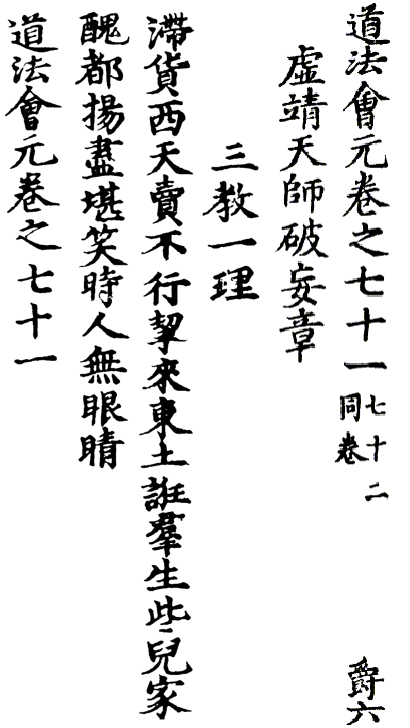 道法會元卷之七十一 七十二同卷 爵六
虛靖天師破妄章
三教一理
滯貨西天賣不行挈來東土誑羣生些兒家
醜都揚盡堪笑時人無眼睛
道法會元卷之七十一